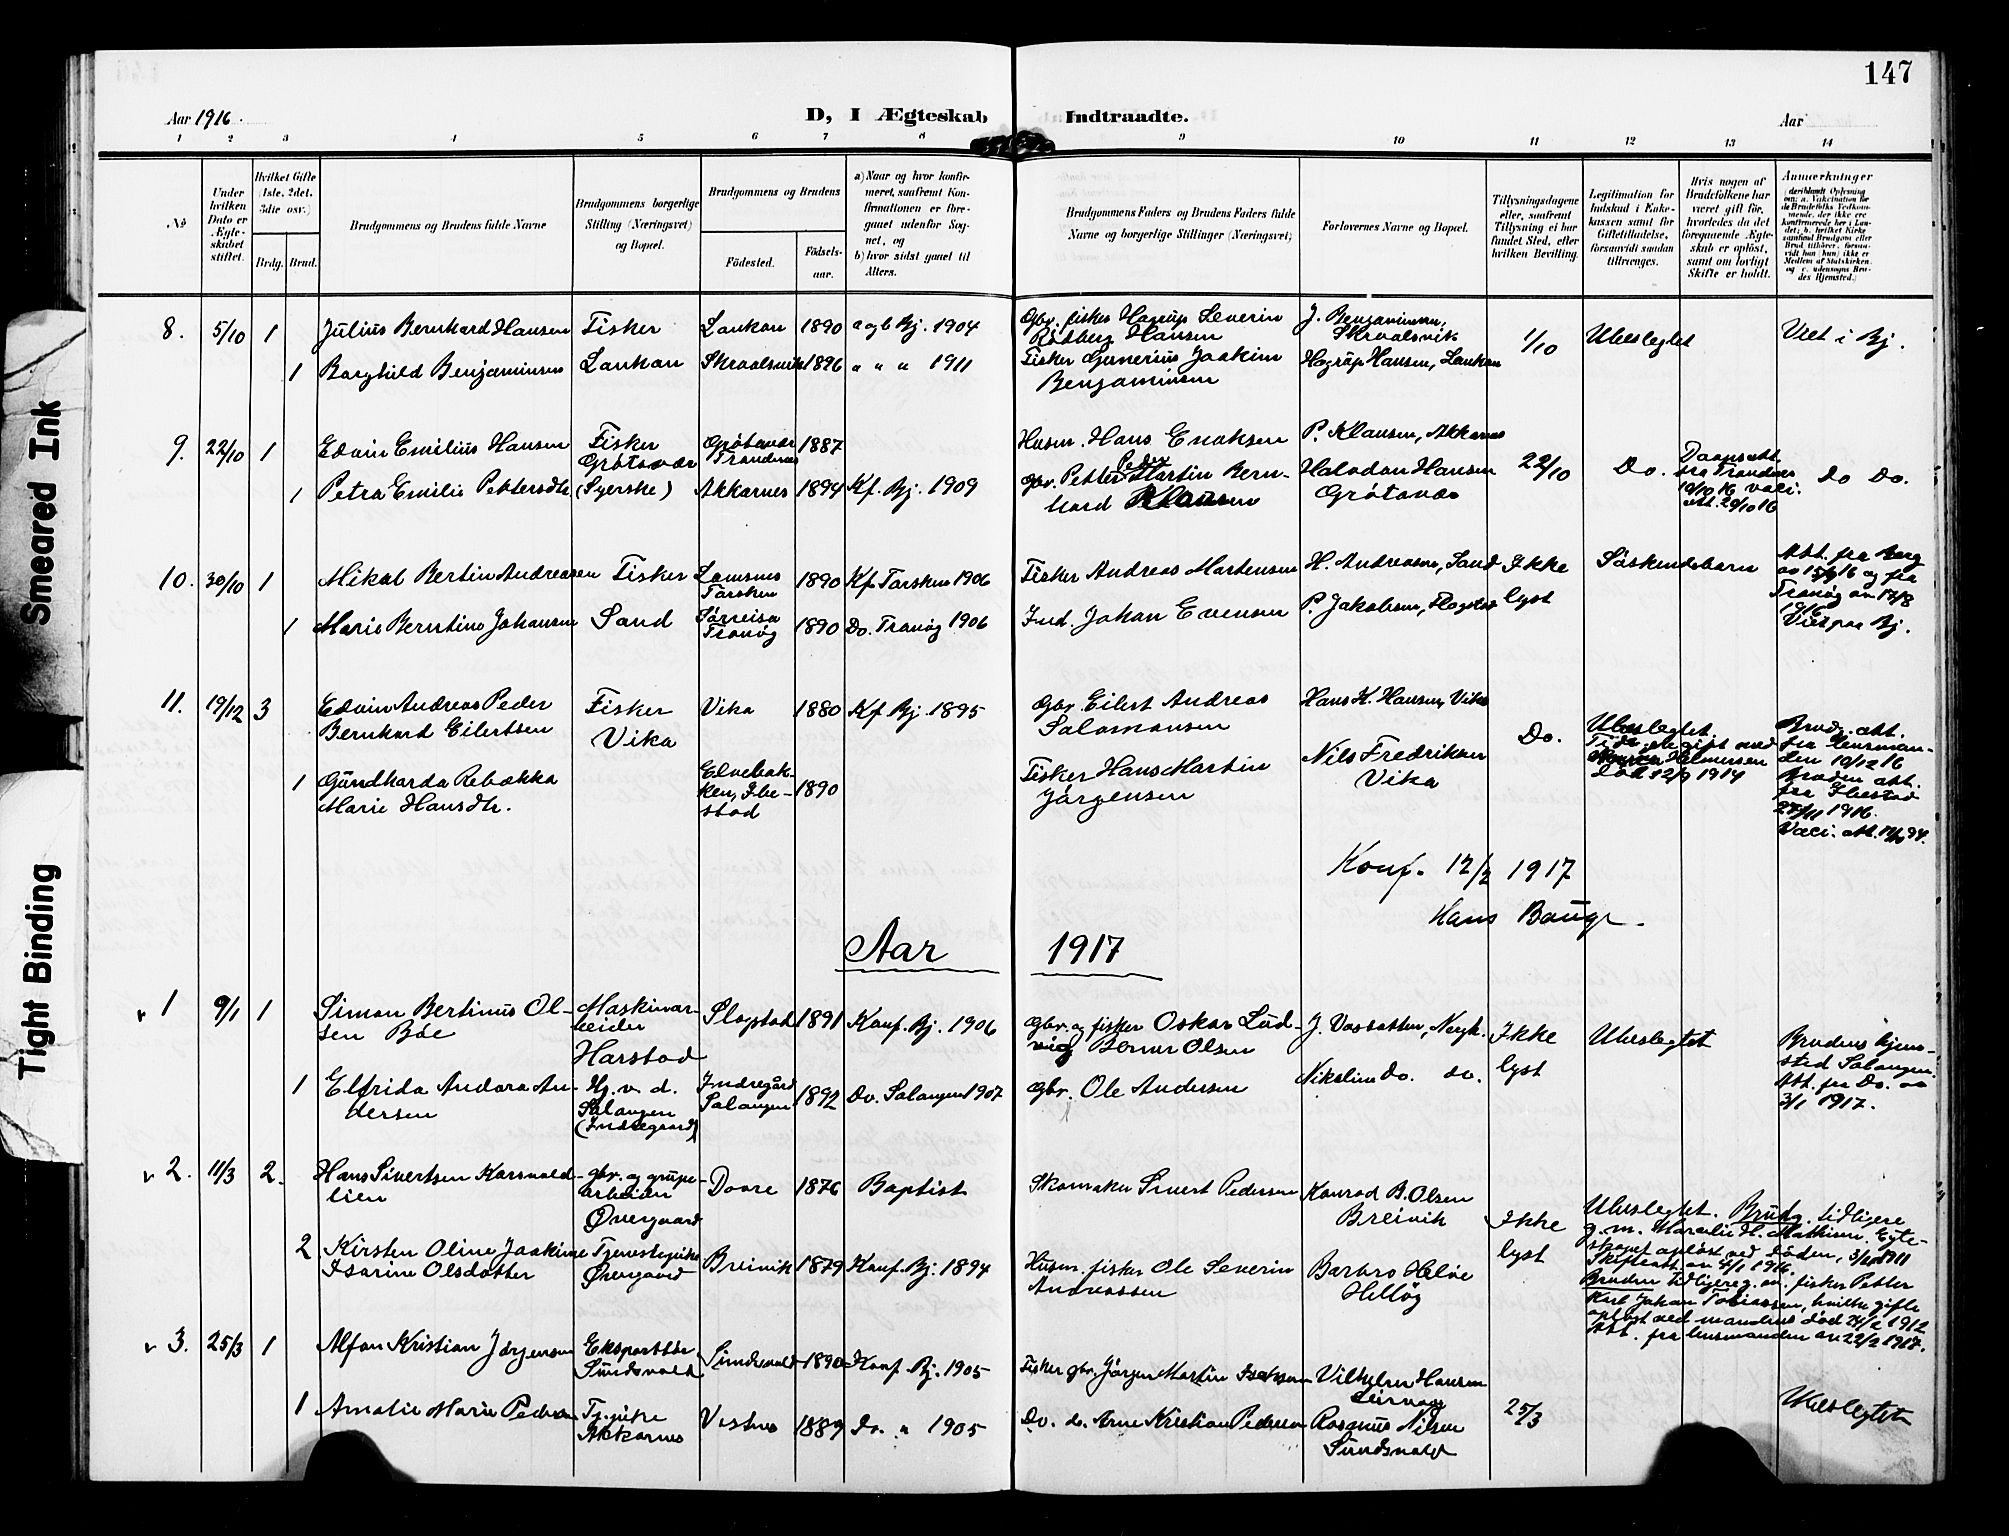 147
Aar 1916.
D, I Ægteskab
Indtraadte.
Aar
1 2 3 4 5 6 7 8 9 10 11 12 13 14
No
Under hvilken Dato er Ægteskabet stiftet.
Hvilket Gifte (1ste, 2det, 3die osv.)
Brdg. Brud.
Brudgommens og Brudens fulde Navne
Brudgommens borgerlige Stilling (Næringsvei) og Bopæl.
Brudgommens og Brudens
Fødested.
Fødselsaar.
a) Naar og hvor konfirmeret, saafremt Konfirmationen er foregaaet udenfor Sognet, og
b) hvor sidst gaaet til Alters.
Brudgommens Faders og Brudens Faders fulde Navne og borgerlige Stillinger (Næringsvei)
Forlovernes Navne og Bopæl.
Tillysningsdagene eller, saafremt Tillysning ei har fundet Sted, efter hvilken Bevilling.
Legitimation for Indskud i Enkekassen samt for Giftetilladelse, forsaavidt saadan tiltrænges.
Hvis nogen af Brudefolkene har været gift før, hvorledes da det foregaaende Ægteskab er opløst, samt om lovligt Skifte er holdt.
Anmærkninger
8. 5/10 1 Julius Bernhard Hansen Fisker Lankan 1890 a og b Bj. 1904
Gbr. fisker Hagrup Severin Rødberg Hansen
J. Benjaminsen, Skroalsvik
1/10 Ubeslegtet Viet i Bj.
1 Borghild Benjaminsen Lankan Skroalsvik 1896 " " " 1911
Fisker Gunerius Joakim Benjaminsen
Hagrup Hansen, Lankan
9. 22/10 1 Edvin Emilius Hansen Fisker Grøtavær Grøtavær Trondenes 1887
Husm. Hans Enoksen
P. Klausen, Akkarnes
22/10 Do. Daapsatt. fra Trondenes 10/10 16 vacc. att. 20/10 16 Do Do.
1 Petra Emilie Pettersdtr (Syerske) Akkarnes 1894 Kf. Bj. 1909
Gbr. Petter Peder Martin Bernhard Klausen
Halvdan Hansen Grøtavær
10. 30/10 1 Mikal Bertin Andreasen Fisker Lamsnes Torsken 1890 Kf. Torsken 1906
Fisker Andreas Mortensen
H. Andreasen, Sand
Ikke lyst Søskendebarn
Att. fra Berg av 15/9 16 og fra Tranøy av 17/8 1916 Viet paa Bj.
1 Marie Berntine Johansen Sand Sørreisa Tranøy 1890 Do. Tranøy 1906
Ind. Johan Evensen
P. Jakobsen, Slagstad
11. 19/12 3 Edvin Andreas Peder Bernhard Eilertsen Fisker Vika Vika 1880 Kf. Bj. 1895
Gbr. Eilert Andreas Salamonsen
Hans K. Hansen, Vika
Do.
Ubeslegtet. Tidr. gift med Helmersen død 12/9 1914
Brudg. att. fra lensmanden 10/12 16 Bruden att. fra Ibestad 27/11 1916. Vacc. att.
1 Gundharda Rebekka Marie Hansdtr. Elvebakken, Ibestad 1890
Fisker Hans Martin Jørgensen
Nils Fredriksen Vika
Konf. 12/2 1917
Hans Bauge.
Aar 1917
v 1 9/1 1 Simon Bertinus Olsen Bøe Maskinarbeider Harstad Slagstad 1891 Konf. Bj. 1906
Gbr. og fisker Oskar Ludvig Berner Olsen
Ikke lyst Ubeslegtet
Brudens hjemsted Salangen. Att. fra Do. av 3/1 1917.
1 Elfrida Andora Andersen Hj. v. d. Salangen (Indregaard) Indregård Salangen 1892 Do. Salangen 1907
Gbr. Ole Andersen
Nikoline Do. do.
v 2. 11/3 2. Hans Sivertsen Korsvoldlien Gbr. og grubearbeider Øvergaard Dovre 1876 Baptist
Skomaker Sivert Pedersen
Konrad B. Olsen Breivik
Ikke lyst
Ubeslegtet. Brudg. tidligere g. m. Maralie H. Mathisen. Egteskapet opløst ved døden, 3/4 1911 Skifteatt. av 4/1 1916.
Bruden tidligere g. m. fisker Petter Karl Johan Tobiassen, hvilke gifte opløst ved mandens død 24/2 1912 Att. fra lensmanden av 22/2 1917.
2 Kirsten Oline Joakime Isarine Olsdatter Tjenestepike Øvergaard Breivik 1879 Konf. Bj. 1894
Husm. fisker Ole Severin Andreassen
Barbro Helve Helløy
v 3. 25/3 1 Alfon Kristian Jørgensen Ekspeditør Sundsvold Sundsvold 1890 Konf. Bj. 1905
Fisker gbr. Jørgen Martin Isaksen
Vilhelm Hansen Leirvaag
25/3 Ubeslegtet
1 Amalie Marie Pedersen Tj. pike Akkarnes Vestnes 1889 Do. " 1905
Do. do. Arne Kristian Pedersen
Rasmus Nilsen Sundsvold
Smeared Ink
Tight Binding